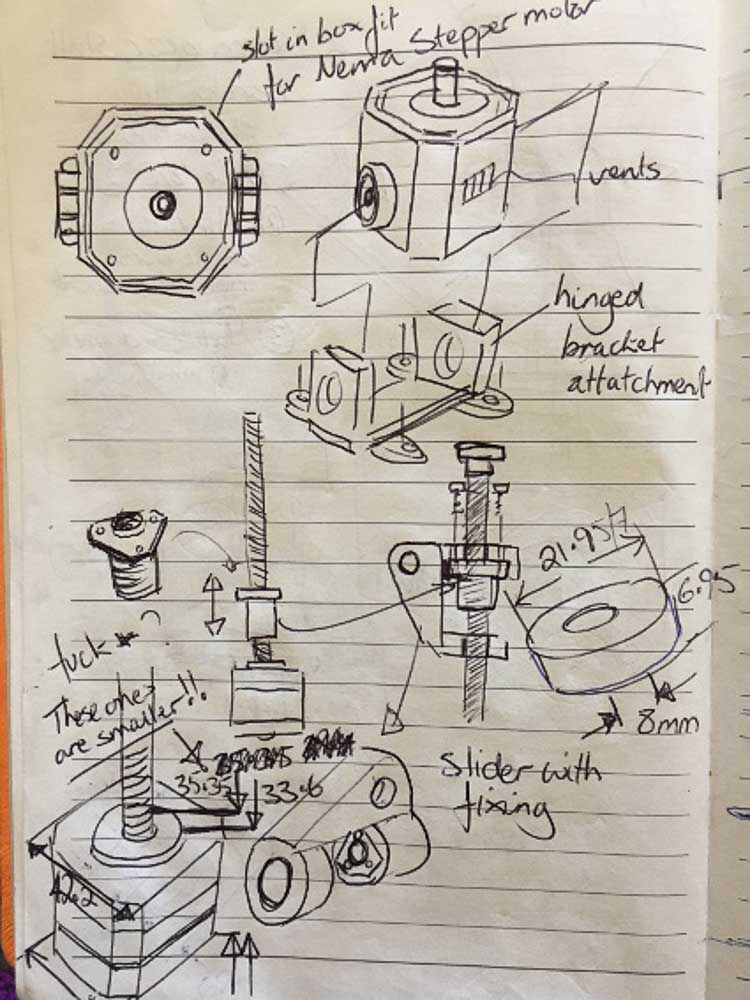 slot in box fit
for Nema Stepper motor
vents
hinged
bracket
attatchment
21.95
6.95
8mm
fuck
These ones
are smaller!!
35.35
33.6
Slider with
fixing
42.2